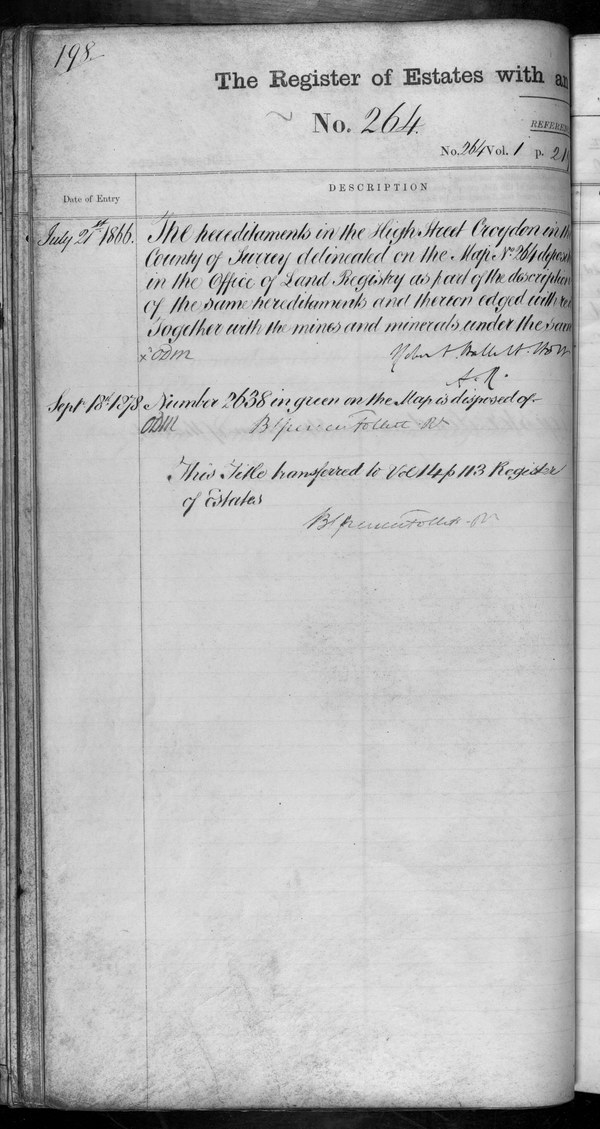 198
The Register of Estates with an
No. 264.
REFEREN
No. 264 Vol. 1 p. 21
Date of Entry
DESCRIPTION
July 21st 1866.
The hereditaments in the High Street Croydon in th
County of Surrey delineated on the Map No 264 deposit
in the Office of Land Registry as part of the description
of the same hereditaments and thereon edged with re
Together with the mines and minerals under the sam
x ODM
A. R.
Sept 18th 1878
Number 2638 in green on the Map is disposed of
ODM Follett Rr
This Title transferred to Vol 14 p 113 Register
of Estates
Follett Rr